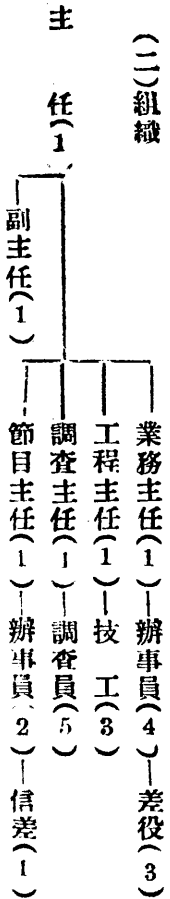 （二）組織
主任（1）
副主任（1）
業務主任（1）—辦事員（4）—差役（3）
工程主任（1）—技工（3）
調查主任（1）—調查員（5）
節目主任（1）—辦事員（2）—信差（1）